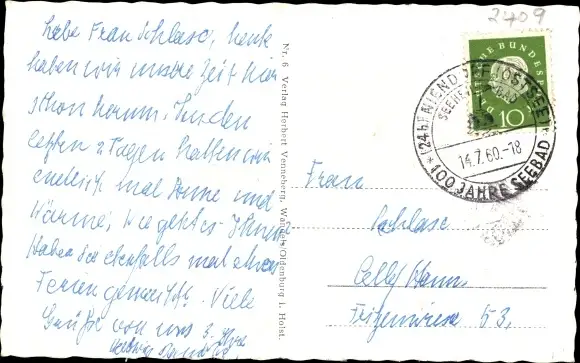 2409
liebe Frau Schlase, heute
haben wir unsere Zeit hier
schon herum. In den
letzten 2 Tagen hatten wir
endlich mal Sonne und
Wärme. Wie geht es Ihnen?
Haben Sie ebenfalls mal etwas
Ferien gemacht. Viele
Grüße von uns 3.
Nr. 6 Verlag Herbert Venneberg, Wandels/Oldenburg i. Holst.
DEUTSCHE BUNDESPOST
10
(24b) HAFFKRUG OSTSEE
14.7.60.-18
100 JAHRE SEEBAD
Frau
Schlase
Celle/Hann.
Fritzenwiese 53,